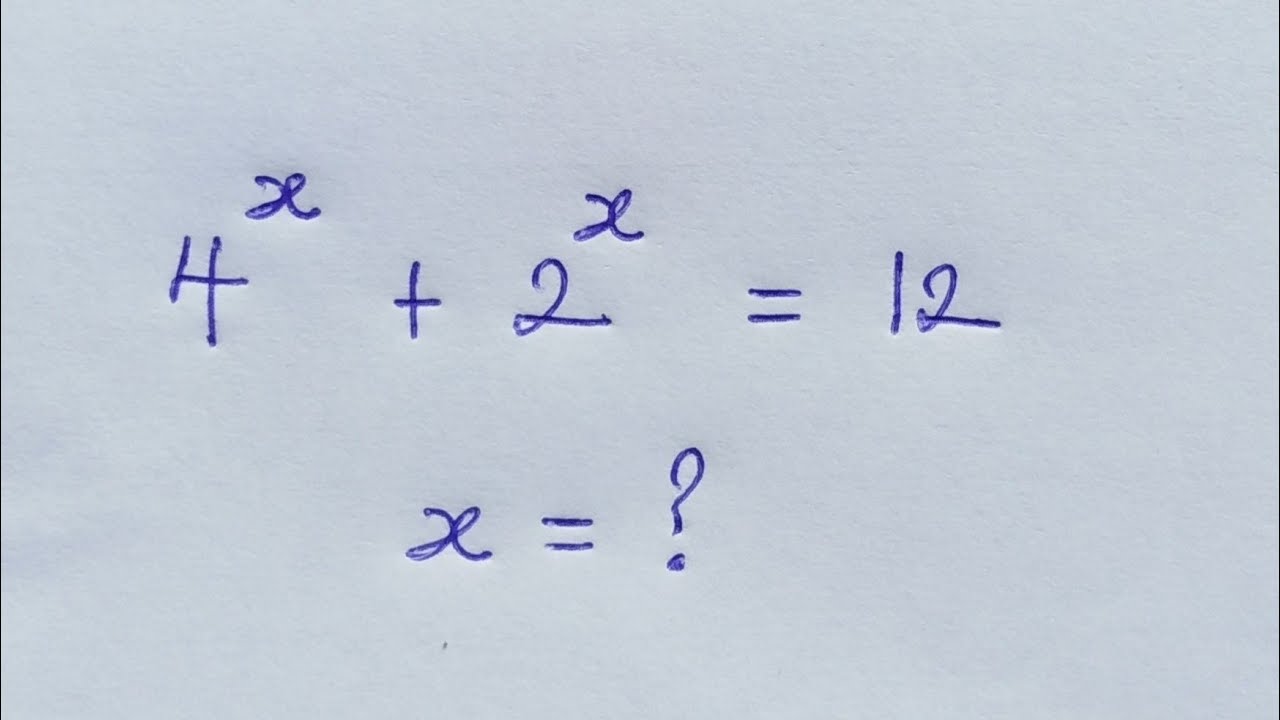 4ˣ + 2ˣ = 12
x = ?